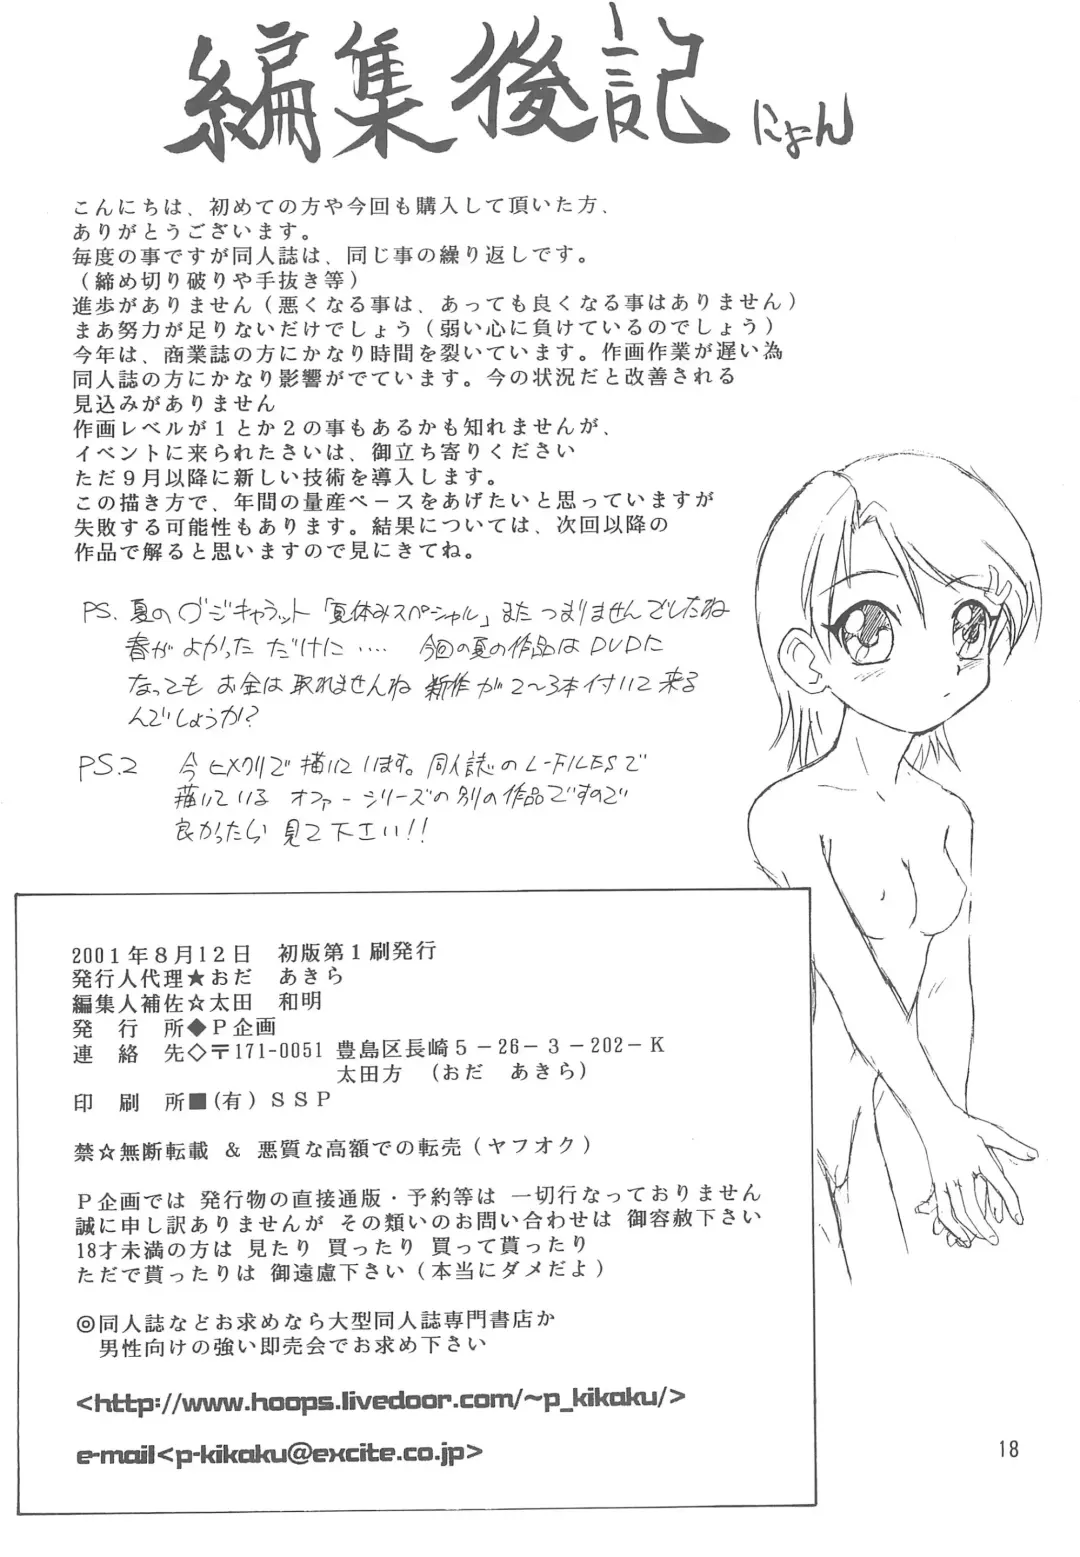 編集後記 にょん
こんにちは、初めての方や今回も購入して頂いた方、
ありがとうございます。
毎度の事ですが同人誌は、同じ事の繰り返しです。
（締め切り破りや手抜き等）
進歩がありません（悪くなる事は、あっても良くなる事はありません）
まあ努力が足りないだけでしょう（弱い心に負けているのでしょう）
今年は、商業誌の方にかなり時間を裂いています。作画作業が遅い為
同人誌の方にかなり影響がでています。今の状況だと改善される
見込みがありません
作画レベルが１とか２の事もあるかも知れませんが、
イベントに来られたさいは、御立ち寄りください
ただ９月以降に新しい技術を導入します。
この描き方で、年間の量産ペースをあげたいと思っていますが
失敗する可能性もあります。結果については、次回以降の
作品で解ると思いますので見にきてね。
PS. 夏のデジキャラット「夏休みスペシャル」またつまりませんでしたね
春がよかっただけに‥‥ 今回の夏の作品はDVDに
なってもお金は取れませんね 新作が2〜3本付いて来る
んでしょうか?
PS.2 今ヒメクリで描いています。同人誌のL-FILESで
描いているオファーシリーズの別の作品ですので
良かったら見て下さい!!
2001年８月12日 初版第１刷発行
発行人代理★おだ あきら
編集人補佐☆太田 和明
発行所◆Ｐ企画
連絡先◇〒171-0051 豊島区長崎５－26－３－202－Ｋ
太田方 （おだ あきら）
印刷所■(有)ＳＳＰ
禁☆無断転載 ＆ 悪質な高額での転売（ヤフオク）
Ｐ企画では 発行物の直接通販・予約等は 一切行なっておりません
誠に申し訳ありませんが その類いのお問い合わせは 御容赦下さい
18才未満の方は 見たり 買ったり 買って貰ったり
ただで貰ったりは 御遠慮下さい（本当にダメだよ）
◎同人誌などお求めなら大型同人誌専門書店か
男性向けの強い即売会でお求め下さい
<http://www.hoops.livedoor.com/~p_kikaku/>
e-mail<p-kikaku@excite.co.jp>
18